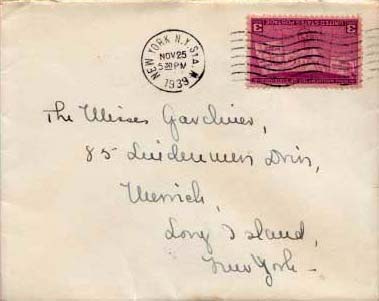 NEW YORK, N.Y. STA. M
NOV 25
5 30 PM
1939
3 3
The Misses Gardiner,
85 Lindenmere Drive,
Merrick,
Long Island,
New York -